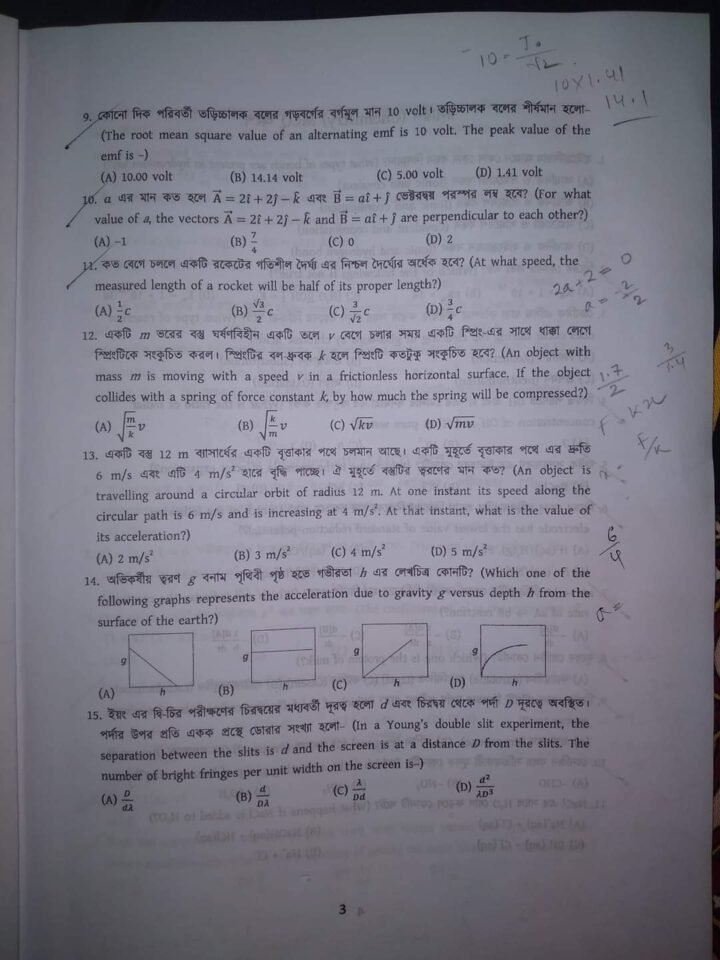 10 = I₀/√2
10×1.41
14.1
9. কোনো দিক পরিবর্তী তড়িচ্চালক বলের গড়বর্গের বর্গমূল মান 10 volt। তড়িচ্চালক বলের শীর্ষমান হলো–
(The root mean square value of an alternating emf is 10 volt. The peak value of the
emf is –)
(A) 10.00 volt (B) 14.14 volt (C) 5.00 volt (D) 1.41 volt
10. a এর মান কত হলে A⃗ = 2î + 2ĵ − k̂ এবং B⃗ = aî + ĵ ভেক্টরদ্বয় পরস্পর লম্ব হবে? (For what
value of a, the vectors A⃗ = 2î + 2ĵ − k̂ and B⃗ = aî + ĵ are perpendicular to each other?)
(A) −1 (B) 7/4 (C) 0 (D) 2
11. কত বেগে চললে একটি রকেটের গতিশীল দৈর্ঘ্য এর নিশ্চল দৈর্ঘ্যের অর্ধেক হবে? (At what speed, the
measured length of a rocket will be half of its proper length?)
2a+2=0
a = -2/2
(A) 1/2 c (B) √3/2 c (C) 3/√2 c (D) 3/4 c
12. একটি m ভরের বস্তু ঘর্ষণবিহীন একটি তলে v বেগে চলার সময় একটি স্প্রিং-এর সাথে ধাক্কা লেগে
স্প্রিংটিকে সংকুচিত করল। স্প্রিংটির বল-ধ্রুবক k হলে স্প্রিংটি কতটুকু সংকুচিত হবে? (An object with
mass m is moving with a speed v in a frictionless horizontal surface. If the object
collides with a spring of force constant k, by how much the spring will be compressed?)
1.7/2
3/1.4
(A) √(m/k) v (B) √(k/m) v (C) √kv (D) √mv
F = kx
F/k
13. একটি বস্তু 12 m ব্যাসার্ধের একটি বৃত্তাকার পথে চলমান আছে। একটি মুহূর্তে বৃত্তাকার পথে এর দ্রুতি
6 m/s এবং এটি 4 m/s² হারে বৃদ্ধি পাচ্ছে। ঐ মুহূর্তে বস্তুটির ত্বরণের মান কত? (An object is
travelling around a circular orbit of radius 12 m. At one instant its speed along the
circular path is 6 m/s and is increasing at 4 m/s². At that instant, what is the value of
its acceleration?)
(A) 2 m/s² (B) 3 m/s² (C) 4 m/s² (D) 5 m/s²
6/4
14. অভিকর্ষীয় ত্বরণ g বনাম পৃথিবী পৃষ্ঠ হতে গভীরতা h এর লেখচিত্র কোনটি? (Which one of the
following graphs represents the acceleration due to gravity g versus depth h from the
surface of the earth?)
g g g g
(A) h (B) h (C) h (D) h
15. ইয়ং এর দ্বি-চির পরীক্ষণের চিরদ্বয়ের মধ্যবর্তী দূরত্ব হলো d এবং চিরদ্বয় থেকে পর্দা D দূরত্বে অবস্থিত।
পর্দার উপর প্রতি একক প্রস্থে ডোরার সংখ্যা হলো– (In a Young's double slit experiment, the
separation between the slits is d and the screen is at a distance D from the slits. The
number of bright fringes per unit width on the screen is–)
(A) D/dλ (B) d/Dλ (C) λ/Dd (D) d²/λD³
3